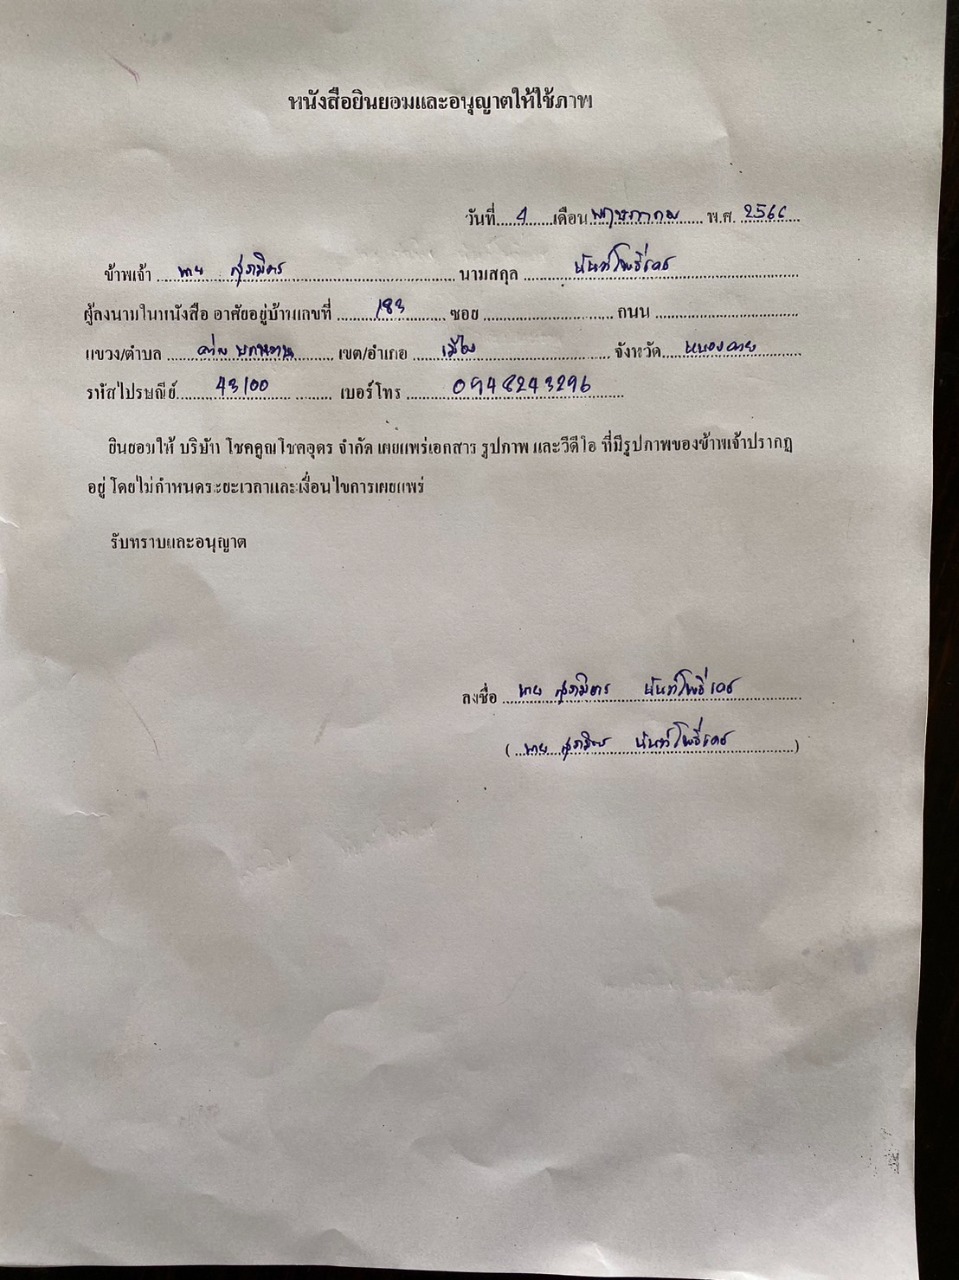 หนังสือยินยอมและอนุญาตให้ใช้ภาพ
วันที่ 4 เดือน พฤษภาคม พ.ศ. 2566
ข้าพเจ้า นาย สุรมิตร นามสกุล นันท์โพธิ์เดช
ผู้ลงนามในหนังสือ อาศัยอยู่บ้านเลขที่ 183 ซอย ถนน
แขวง/ตำบล ค่ายบกหวาน เขต/อำเภอ เมือง จังหวัด หนองคาย
รหัสไปรษณีย์ 43100 เบอร์โทร 0948243296
ยินยอมให้ บริษัท โชคคูณโชคอุดร จำกัด เผยแพร่เอกสาร รูปภาพ และวีดีโอ ที่มีรูปภาพของข้าพเจ้าปรากฏ
อยู่ โดยไม่กำหนดระยะเวลาและเงื่อนไขการเผยแพร่
รับทราบและอนุญาต
ลงชื่อ นาย สุรมิตร นันท์โพธิ์เดช
( นาย สุรมิตร นันท์โพธิ์เดช )